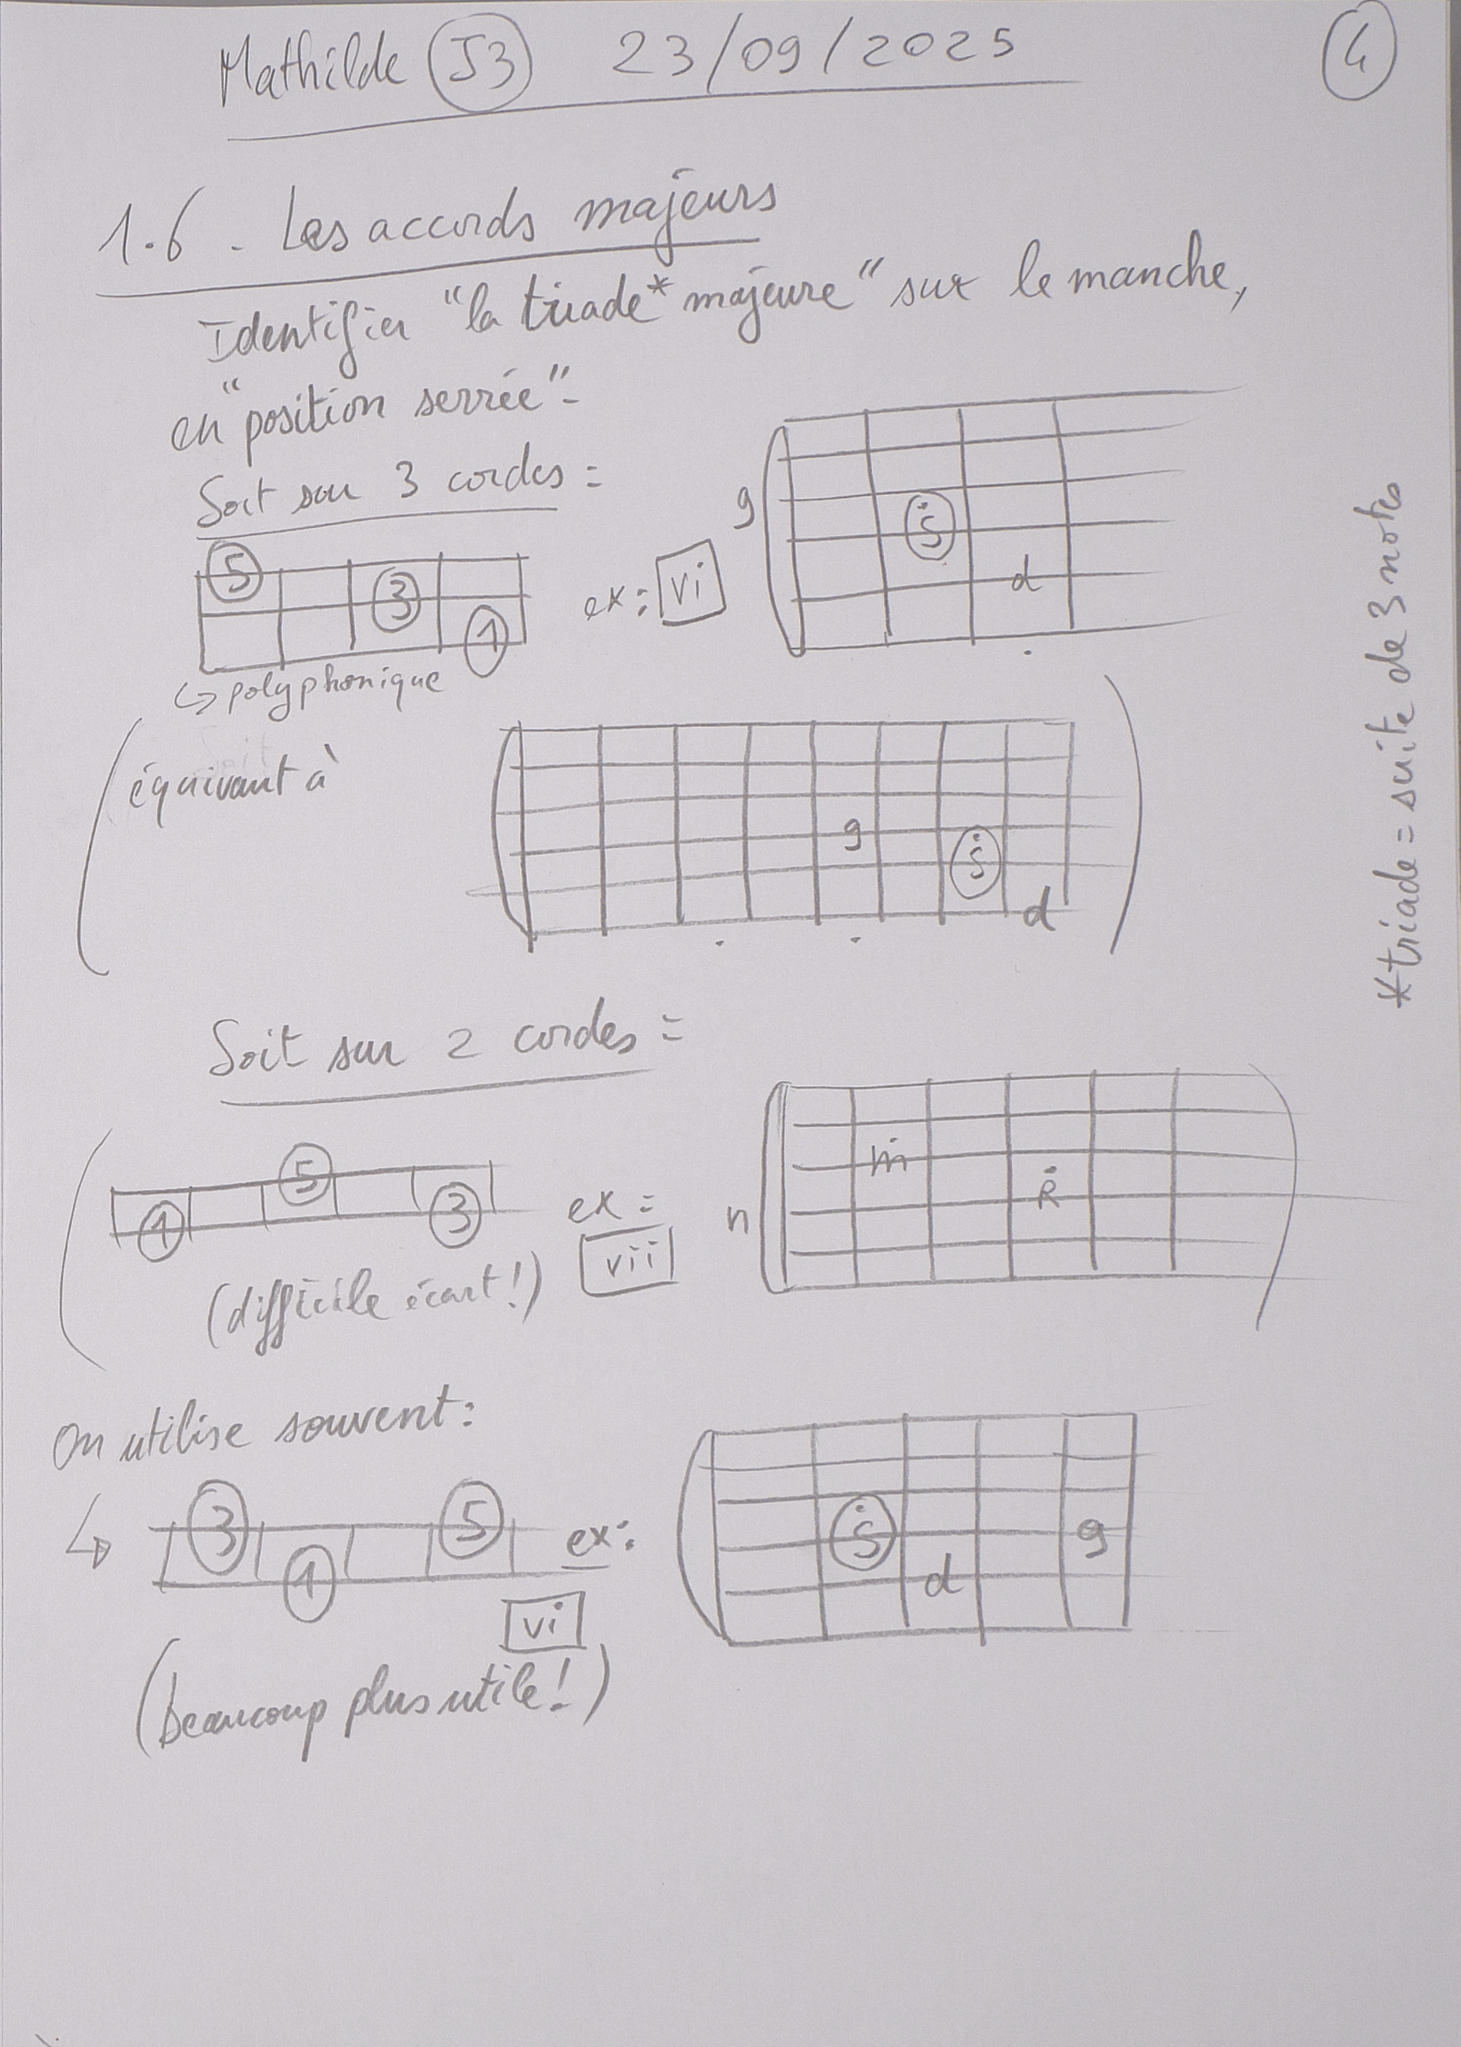 Mathilde J3 23/09/2025 4
1.6. Les accords majeurs
Identifier "la triade* majeure" sur le manche,
en "position serrée".
Soit sur 3 cordes :
5
3
1
ex: vi
g
S
d
↳ polyphonique
équivaut à
g
S
d
Soit sur 2 cordes :
1
5
3
ex:
vii
n
m
R
(difficile écart!)
On utilise souvent:
↳ 3
1
5
ex:
vi
S
d
g
(beaucoup plus utile!)
*triade = suite de 3 notes